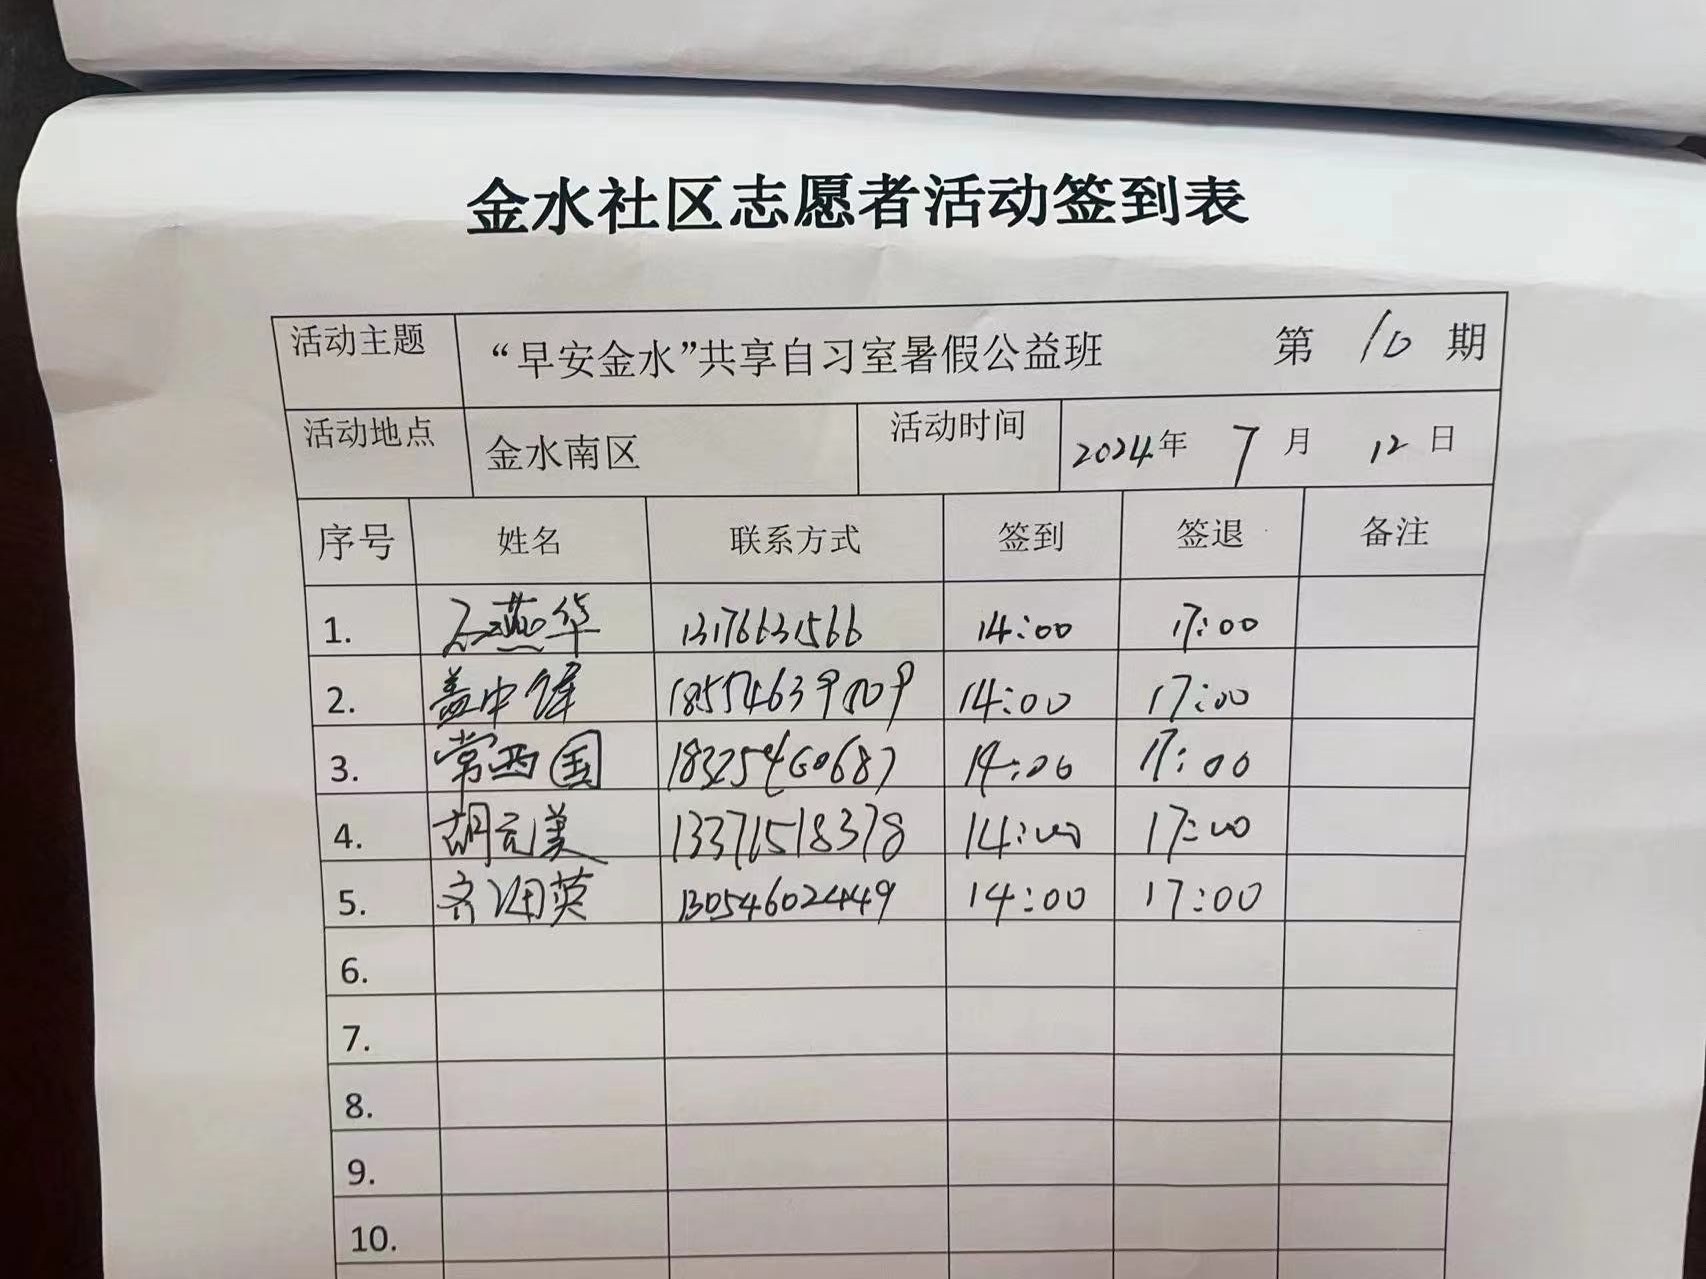 金水社区志愿者活动签到表
活动主题 “早安金水”共享自习室暑假公益班 第 10 期
活动地点 金水南区 活动时间 2024年 7 月 12 日
序号 姓名 联系方式 签到 签退 备注
1. 燕华 13176631566 14:00 17:00
2. 盖中锋 18554639509 14:00 17:00
3. 常西国 18325460687 14:00 17:00
4. 胡元美 13371518378 14:00 17:00
5. 齐英 13054602449 14:00 17:00
6.
7.
8.
9.
10.